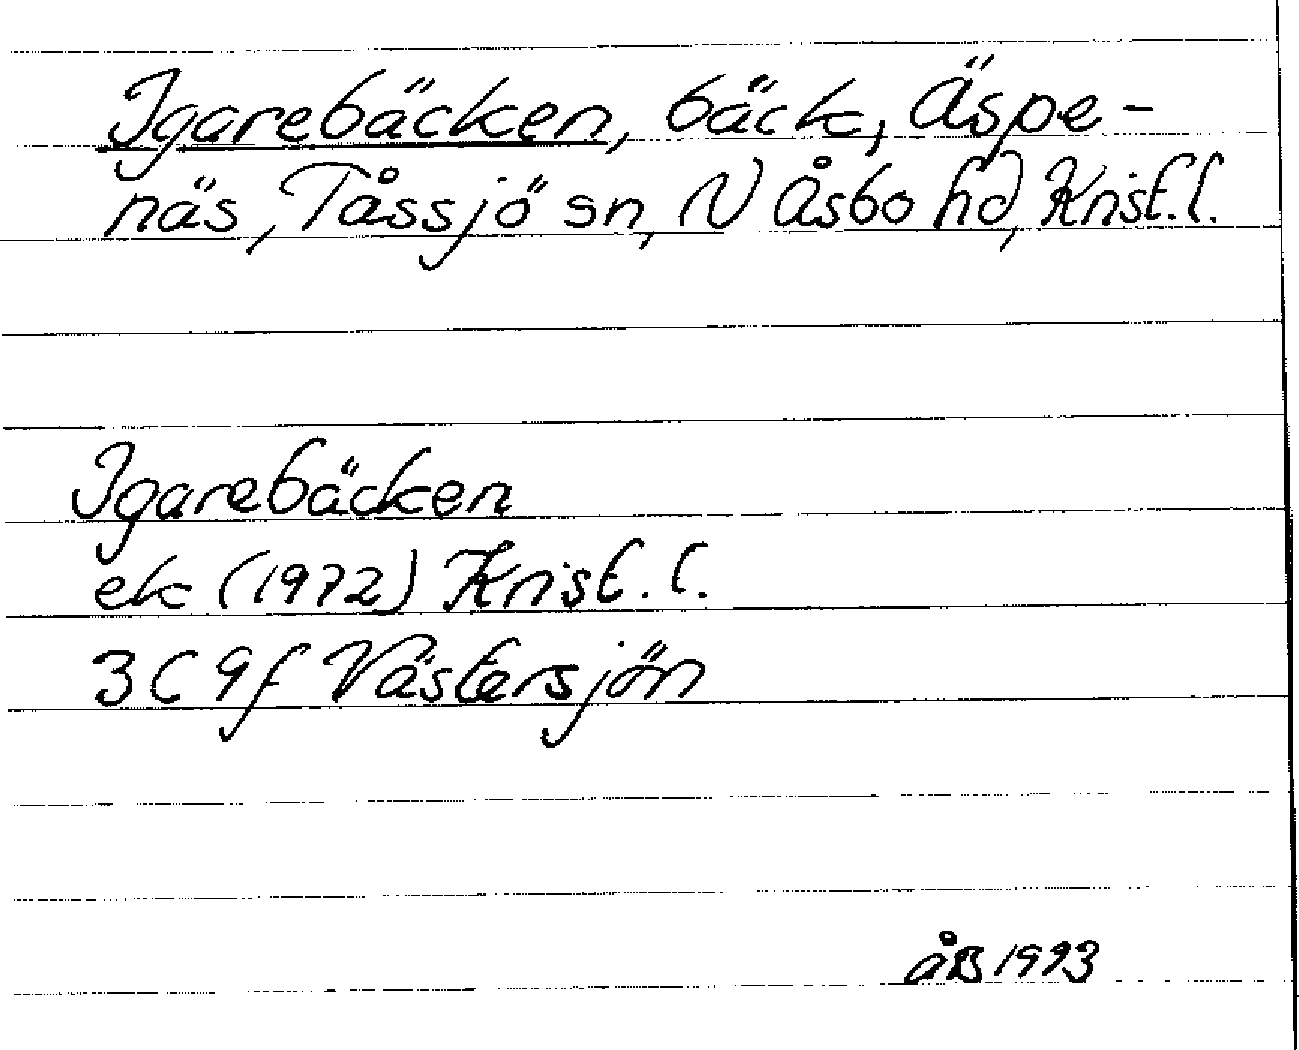 Igarebäcken, bäck, Äspe-
näs, Tåssjö sn, N Åsbo hd, Krist. l.
Igarebäcken
ek (1972) Krist. l.
3C 9f Västersjön
åB 1993